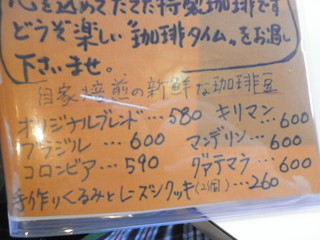 心を込めてたてた特製珈琲です
どうぞ楽しい"珈琲タイム"をお過し
下さいませ。
自家焙煎の新鮮な珈琲豆
オリジナルブレンド…580
キリマン…600
ブラジル…600
マンデリン…600
コロンビア…590
グァテマラ…600
手作りくるみとレーズンクッキー(2個)…260